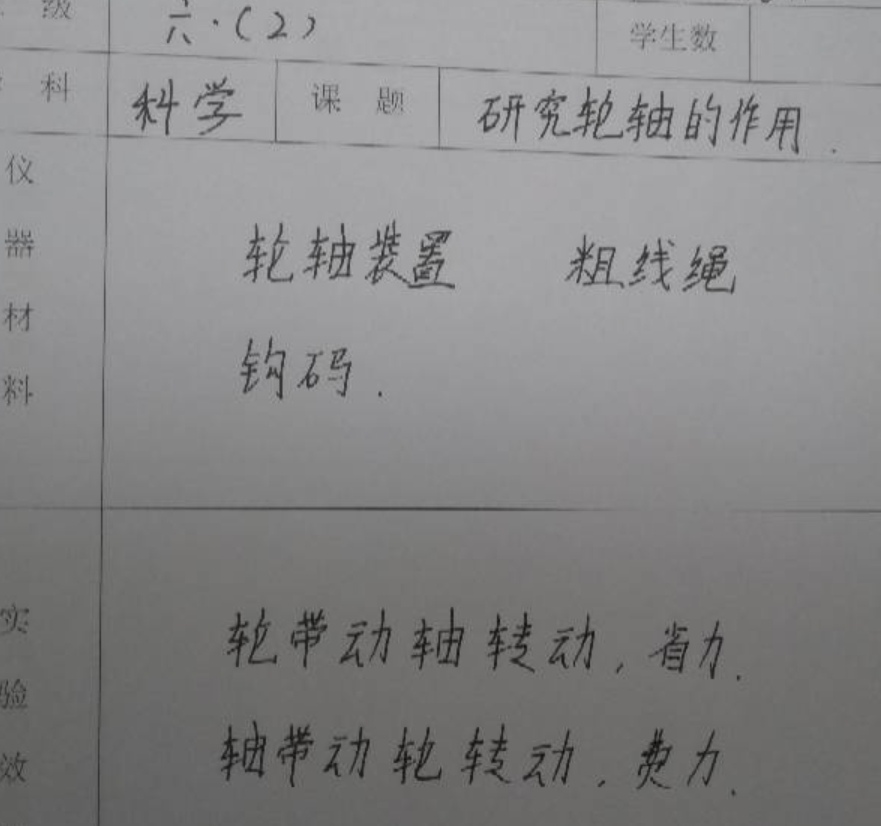 级 六.(2) 学生数
科 科学 课题 研究轮轴的作用.
仪器材料
轮轴装置 粗线绳
钩码.
实验效
轮带动轴转动,省力.
轴带动轮转动.费力.